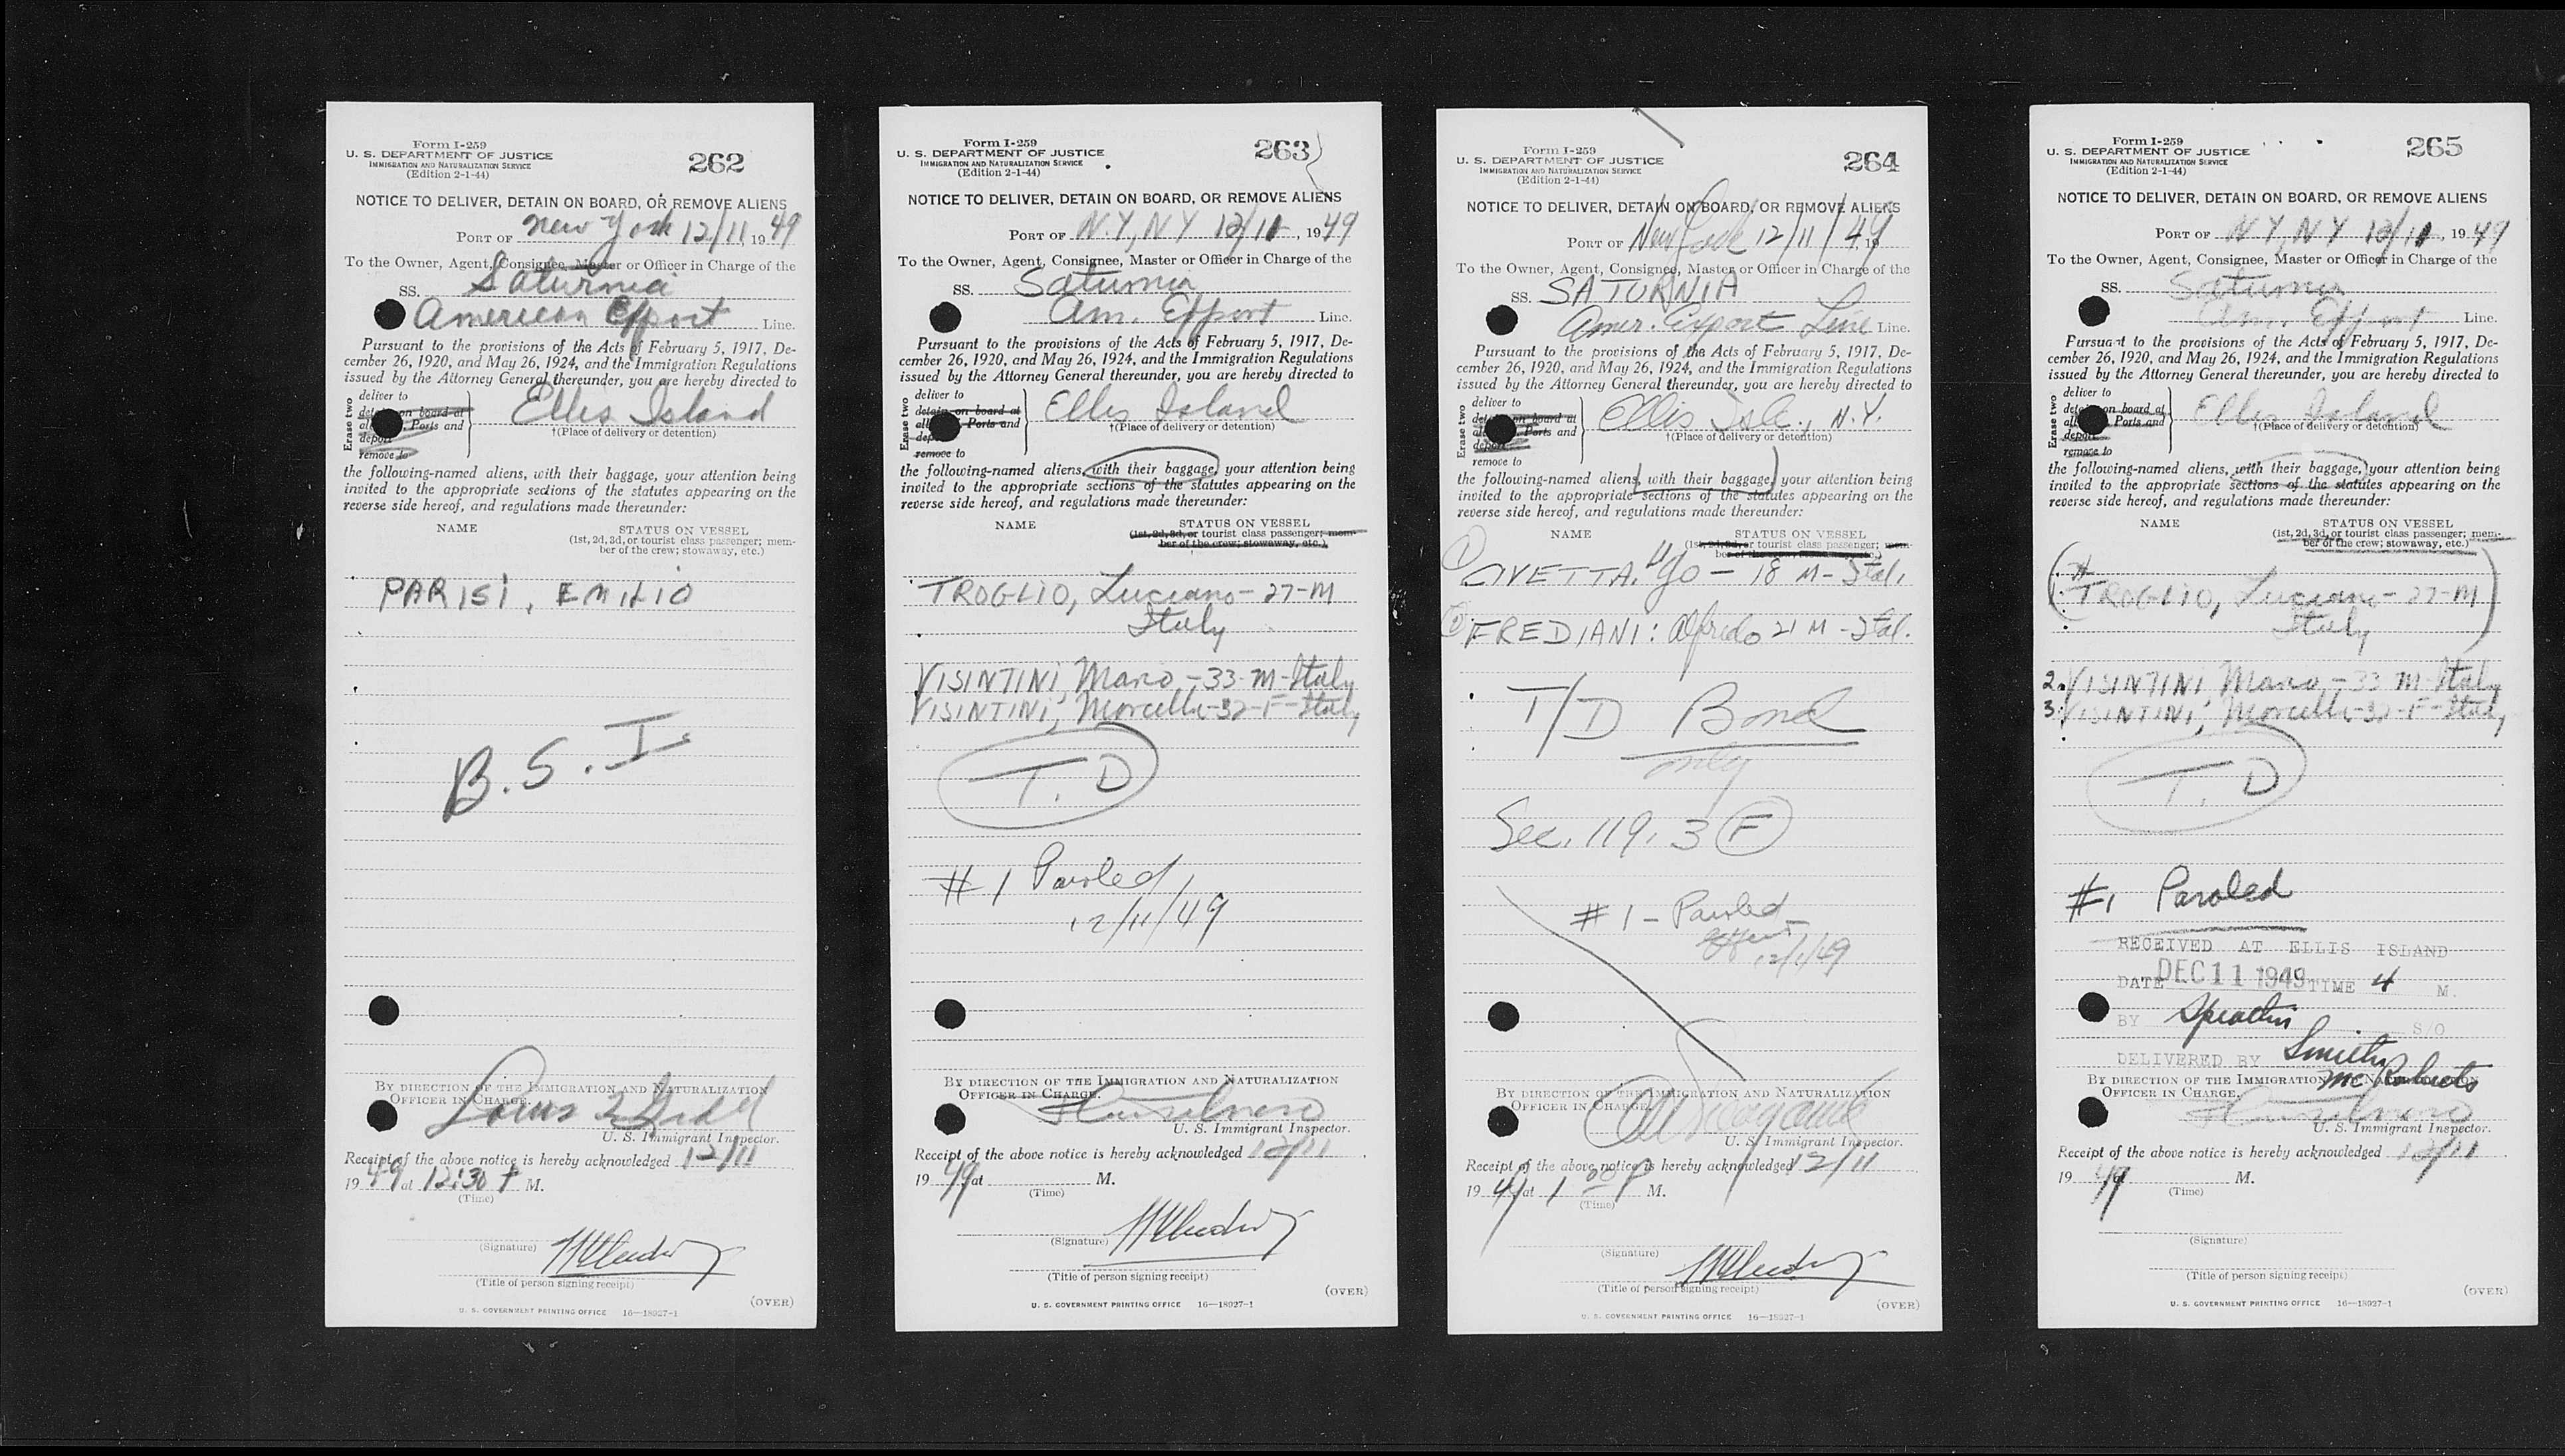 Form I-259
U. S. DEPARTMENT OF JUSTICE
IMMIGRATION AND NATURALIZATION SERVICE
(Edition 2-1-44)
262
NOTICE TO DELIVER, DETAIN ON BOARD, OR REMOVE ALIENS
PORT OF New York 12/11, 1949
To the Owner, Agent, Consignee, Master or Officer in Charge of the
SS. Saturnia
American Export Line.
Pursuant to the provisions of the Acts of February 5, 1917, De-
cember 26, 1920, and May 26, 1924, and the Immigration Regulations
issued by the Attorney General thereunder, you are hereby directed to
Erase two
deliver to
on board at
Ports and
deport
remove to
Ellis Island
†(Place of delivery or detention)
the following-named aliens, with their baggage, your attention being
invited to the appropriate sections of the statutes appearing on the
reverse side hereof, and regulations made thereunder:
NAME
STATUS ON VESSEL
(1st, 2d, 3d, or tourist class passenger; mem-
ber of the crew; stowaway, etc.)
PARISI, EMILIO
B.S.I.
BY DIRECTION OF THE IMMIGRATION AND NATURALIZATION
OFFICER IN CHARGE.
Louis
U. S. Immigrant Inspector.
Receipt of the above notice is hereby acknowledged 12/11
1949 at 12:30 P M.
(Time)
(Signature)
(Title of person signing receipt)
(OVER)
U. S. GOVERNMENT PRINTING OFFICE 16—18027-1
Form I-259
U. S. DEPARTMENT OF JUSTICE
IMMIGRATION AND NATURALIZATION SERVICE
(Edition 2-1-44)
263
NOTICE TO DELIVER, DETAIN ON BOARD, OR REMOVE ALIENS
PORT OF N.Y, NY 12/11, 1949
To the Owner, Agent, Consignee, Master or Officer in Charge of the
SS. Saturnia
Am. Export Line.
Pursuant to the provisions of the Acts of February 5, 1917, De-
cember 26, 1920, and May 26, 1924, and the Immigration Regulations
issued by the Attorney General thereunder, you are hereby directed to
Erase two
deliver to
detain on board at
all Ports and
deport
remove to
Ellis Island
†(Place of delivery or detention)
the following-named aliens, with their baggage, your attention being
invited to the appropriate sections of the statutes appearing on the
reverse side hereof, and regulations made thereunder:
NAME
STATUS ON VESSEL
(1st, 2d, 3d, or tourist class passenger; mem-
ber of the crew; stowaway, etc.)
TROGLIO, Luciano - 27-M
Italy
VISINTINI, Mario - 33-M-Italy
VISINTINI, Marcella-32-F-Italy
T.D
#1 Paroled
12/11/49
BY DIRECTION OF THE IMMIGRATION AND NATURALIZATION
OFFICER IN CHARGE.
U. S. Immigrant Inspector.
Receipt of the above notice is hereby acknowledged 12/11
1949 at M.
(Time)
(Signature)
(Title of person signing receipt)
(OVER)
U. S. GOVERNMENT PRINTING OFFICE 16—18027-1
Form I-259
U. S. DEPARTMENT OF JUSTICE
IMMIGRATION AND NATURALIZATION SERVICE
(Edition 2-1-44)
264
NOTICE TO DELIVER, DETAIN ON BOARD, OR REMOVE ALIENS
PORT OF New York 12/11/49
To the Owner, Agent, Consignee, Master or Officer in Charge of the
SS. SATURNIA
Amer. Export Line Line.
Pursuant to the provisions of the Acts of February 5, 1917, De-
cember 26, 1920, and May 26, 1924, and the Immigration Regulations
issued by the Attorney General thereunder, you are hereby directed to
Erase two
deliver to
on board at
Ports and
deport
remove to
Ellis Isle., N.Y.
†(Place of delivery or detention)
the following-named aliens, with their baggage, your attention being
invited to the appropriate sections of the statutes appearing on the
reverse side hereof, and regulations made thereunder:
NAME
STATUS ON VESSEL
(1st, 2d, 3d, or tourist class passenger; mem-
ber of the crew; stowaway, etc.)
① CIVETTA, Ugo - 18 M - Ital.
② FREDIANI: Alfredo 21 M - Ital.
T/D Bond
only
Sec. 119.3 (F)
#1 - Paroled
12/11/49
BY DIRECTION OF THE IMMIGRATION AND NATURALIZATION
OFFICER IN CHARGE.
U. S. Immigrant Inspector.
Receipt of the above notice is hereby acknowledged 12/11
1949 at 1 00 P M.
(Time)
(Signature)
(Title of person signing receipt)
(OVER)
U. S. GOVERNMENT PRINTING OFFICE 16—18027-1
Form I-259
U. S. DEPARTMENT OF JUSTICE
IMMIGRATION AND NATURALIZATION SERVICE
(Edition 2-1-44)
265
NOTICE TO DELIVER, DETAIN ON BOARD, OR REMOVE ALIENS
PORT OF N.Y, NY 12/11, 1949
To the Owner, Agent, Consignee, Master or Officer in Charge of the
SS. Saturnia
Am. Export Line.
Pursuant to the provisions of the Acts of February 5, 1917, De-
cember 26, 1920, and May 26, 1924, and the Immigration Regulations
issued by the Attorney General thereunder, you are hereby directed to
Erase two
deliver to
detain on board at
all Ports and
deport
remove to
Ellis Island
†(Place of delivery or detention)
the following-named aliens, with their baggage, your attention being
invited to the appropriate sections of the statutes appearing on the
reverse side hereof, and regulations made thereunder:
NAME
STATUS ON VESSEL
(1st, 2d, 3d, or tourist class passenger; mem-
ber of the crew; stowaway, etc.)
TROGLIO, Luciano - 27-M
Italy
2. VISINTINI Mario - 33 M-Italy
3. VISINTINI, Marcella-32-F-Italy
T.D
#1 Paroled
RECEIVED AT ELLIS ISLAND
DATE DEC 11 1949 TIME 4 M.
BY S/O
DELIVERED BY Smith
McRoberts
BY DIRECTION OF THE IMMIGRATION AND NATURALIZATION
OFFICER IN CHARGE.
U. S. Immigrant Inspector.
Receipt of the above notice is hereby acknowledged 12/11
1949 M.
(Time)
(Signature)
(Title of person signing receipt)
(OVER)
U. S. GOVERNMENT PRINTING OFFICE 16—18027-1